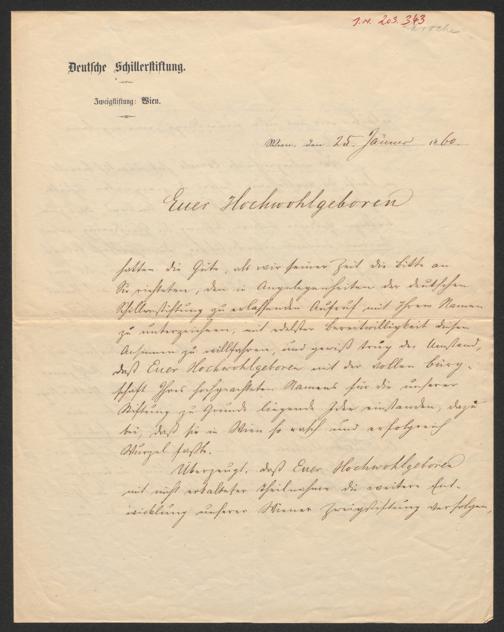 J.N. 203.343
Deutsche Schillerstiftung.
Zweigstiftung: Wien.
Wien, den 25. Jänner 1860.
Euer Hochwohlgeboren
hatten die Güte, als wir seiner Zeit die Bitte an
Sie richteten, den in Angelegenheiten der deutschen
Schillerstiftung zu erlassenden Aufruf mit Ihrem Namen
zu unterzeichnen, mit edelster Bereitwilligkeit diesem
Ansinnen zu willfahren, und gewiß trug der Umstand,
daß Euer Hochwohlgeboren mit der vollen Bürg-
schaft Ihres hochgeachteten Namens für die unserer
Stiftung zu Grunde liegende Idee einstanden, dazu
bei, daß sie in Wien so rasch und erfolgreich
Wurzel faßte.
Überzeugt, daß Euer Hochwohlgeboren
mit nicht erkalteter Theilnahme die weitere Ent-
wicklung unserer Wiener Zweigstiftung verfolgen,